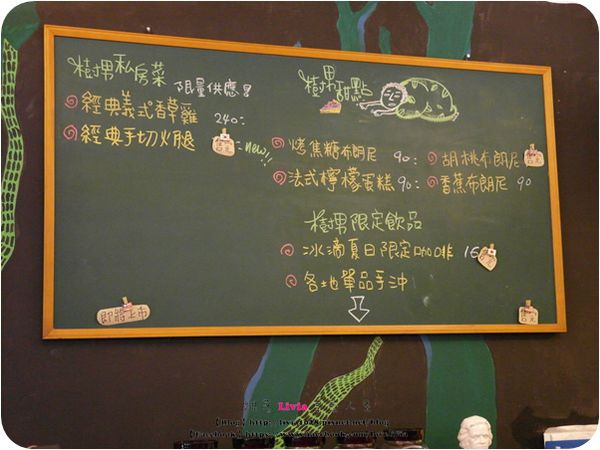 樹男私房菜 限量供應!!
經典義式香草雞 240.
經典手切火腿 new!!
樹男甜點
烤焦糖布朗尼 90. 胡桃布朗尼
法式檸檬蛋糕 90. 香蕉布朗尼 90
樹男限定飲品
冰滴夏日限定咖啡
各地單品手沖
即將上市
Livia